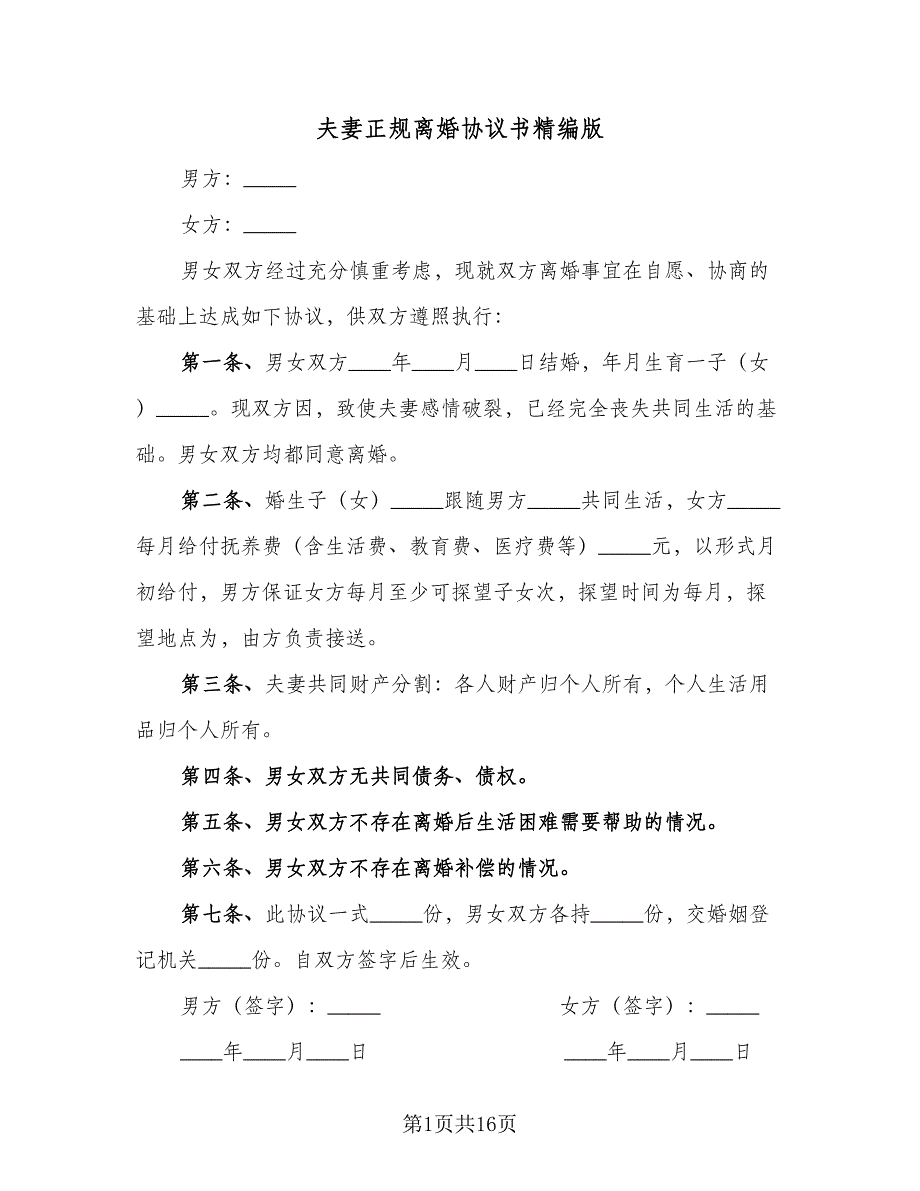 夫妻正规离婚协议书精编版
男方：_____
女方：_____
男女双方经过充分慎重考虑，现就双方离婚事宜在自愿、协商的
基础上达成如下协议，供双方遵照执行：
第一条、男女双方____年____月____日结婚，年月生育一子（女
）_____。现双方因，致使夫妻感情破裂，已经完全丧失共同生活的基
础。男女双方均都同意离婚。
第二条、婚生子（女）_____跟随男方_____共同生活，女方_____
每月给付抚养费（含生活费、教育费、医疗费等）_____元，以形式月
初给付，男方保证女方每月至少可探望子女次，探望时间为每月，探
望地点为，由方负责接送。
第三条、夫妻共同财产分割：各人财产归个人所有，个人生活用
品归个人所有。
第四条、男女双方无共同债务、债权。
第五条、男女双方不存在离婚后生活困难需要帮助的情况。
第六条、男女双方不存在离婚补偿的情况。
第七条、此协议一式_____份，男女双方各持_____份，交婚姻登
记机关_____份。自双方签字后生效。
男方（签字）：_____ 女方（签字）：_____
____年____月____日 ____年____月____日
第1页共16页